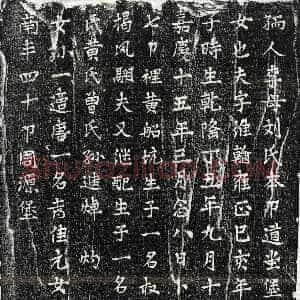 孺人李母刘氏本卩道坐堡
女也夫字維翰雍正巳亥年
子時生乾隆五年九月十
嘉慶十五年三月念八日卜
七卩裡黄船坑生子一名叔
揭凤翔夫又继配生子一名
黄氏曾氏孙進焯 灼
女孙一適唐 名 佳元女
南丰四十卩周源堡